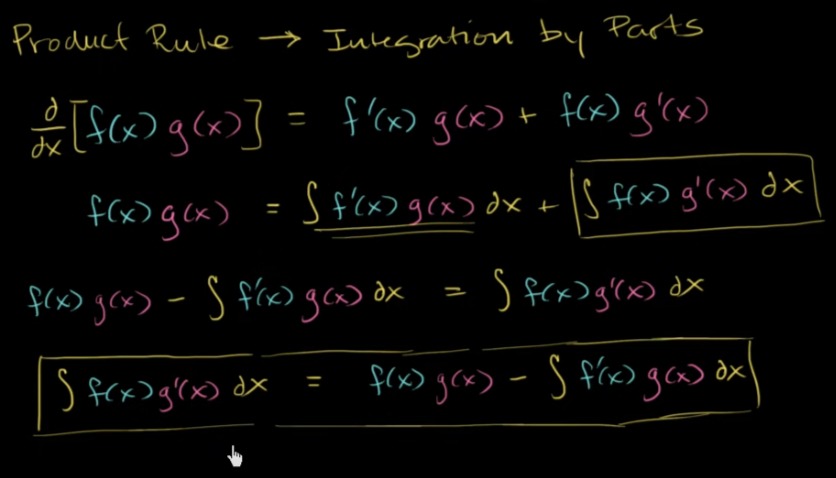 Product Rule → Integration by Parts
d/dx [f(x) g(x)] = f'(x) g(x) + f(x) g'(x)
f(x) g(x) = ∫ f'(x) g(x) dx + ∫ f(x) g'(x) dx
f(x) g(x) - ∫ f'(x) g(x) dx = ∫ f(x) g'(x) dx
∫ f(x) g'(x) dx = f(x) g(x) - ∫ f'(x) g(x) dx